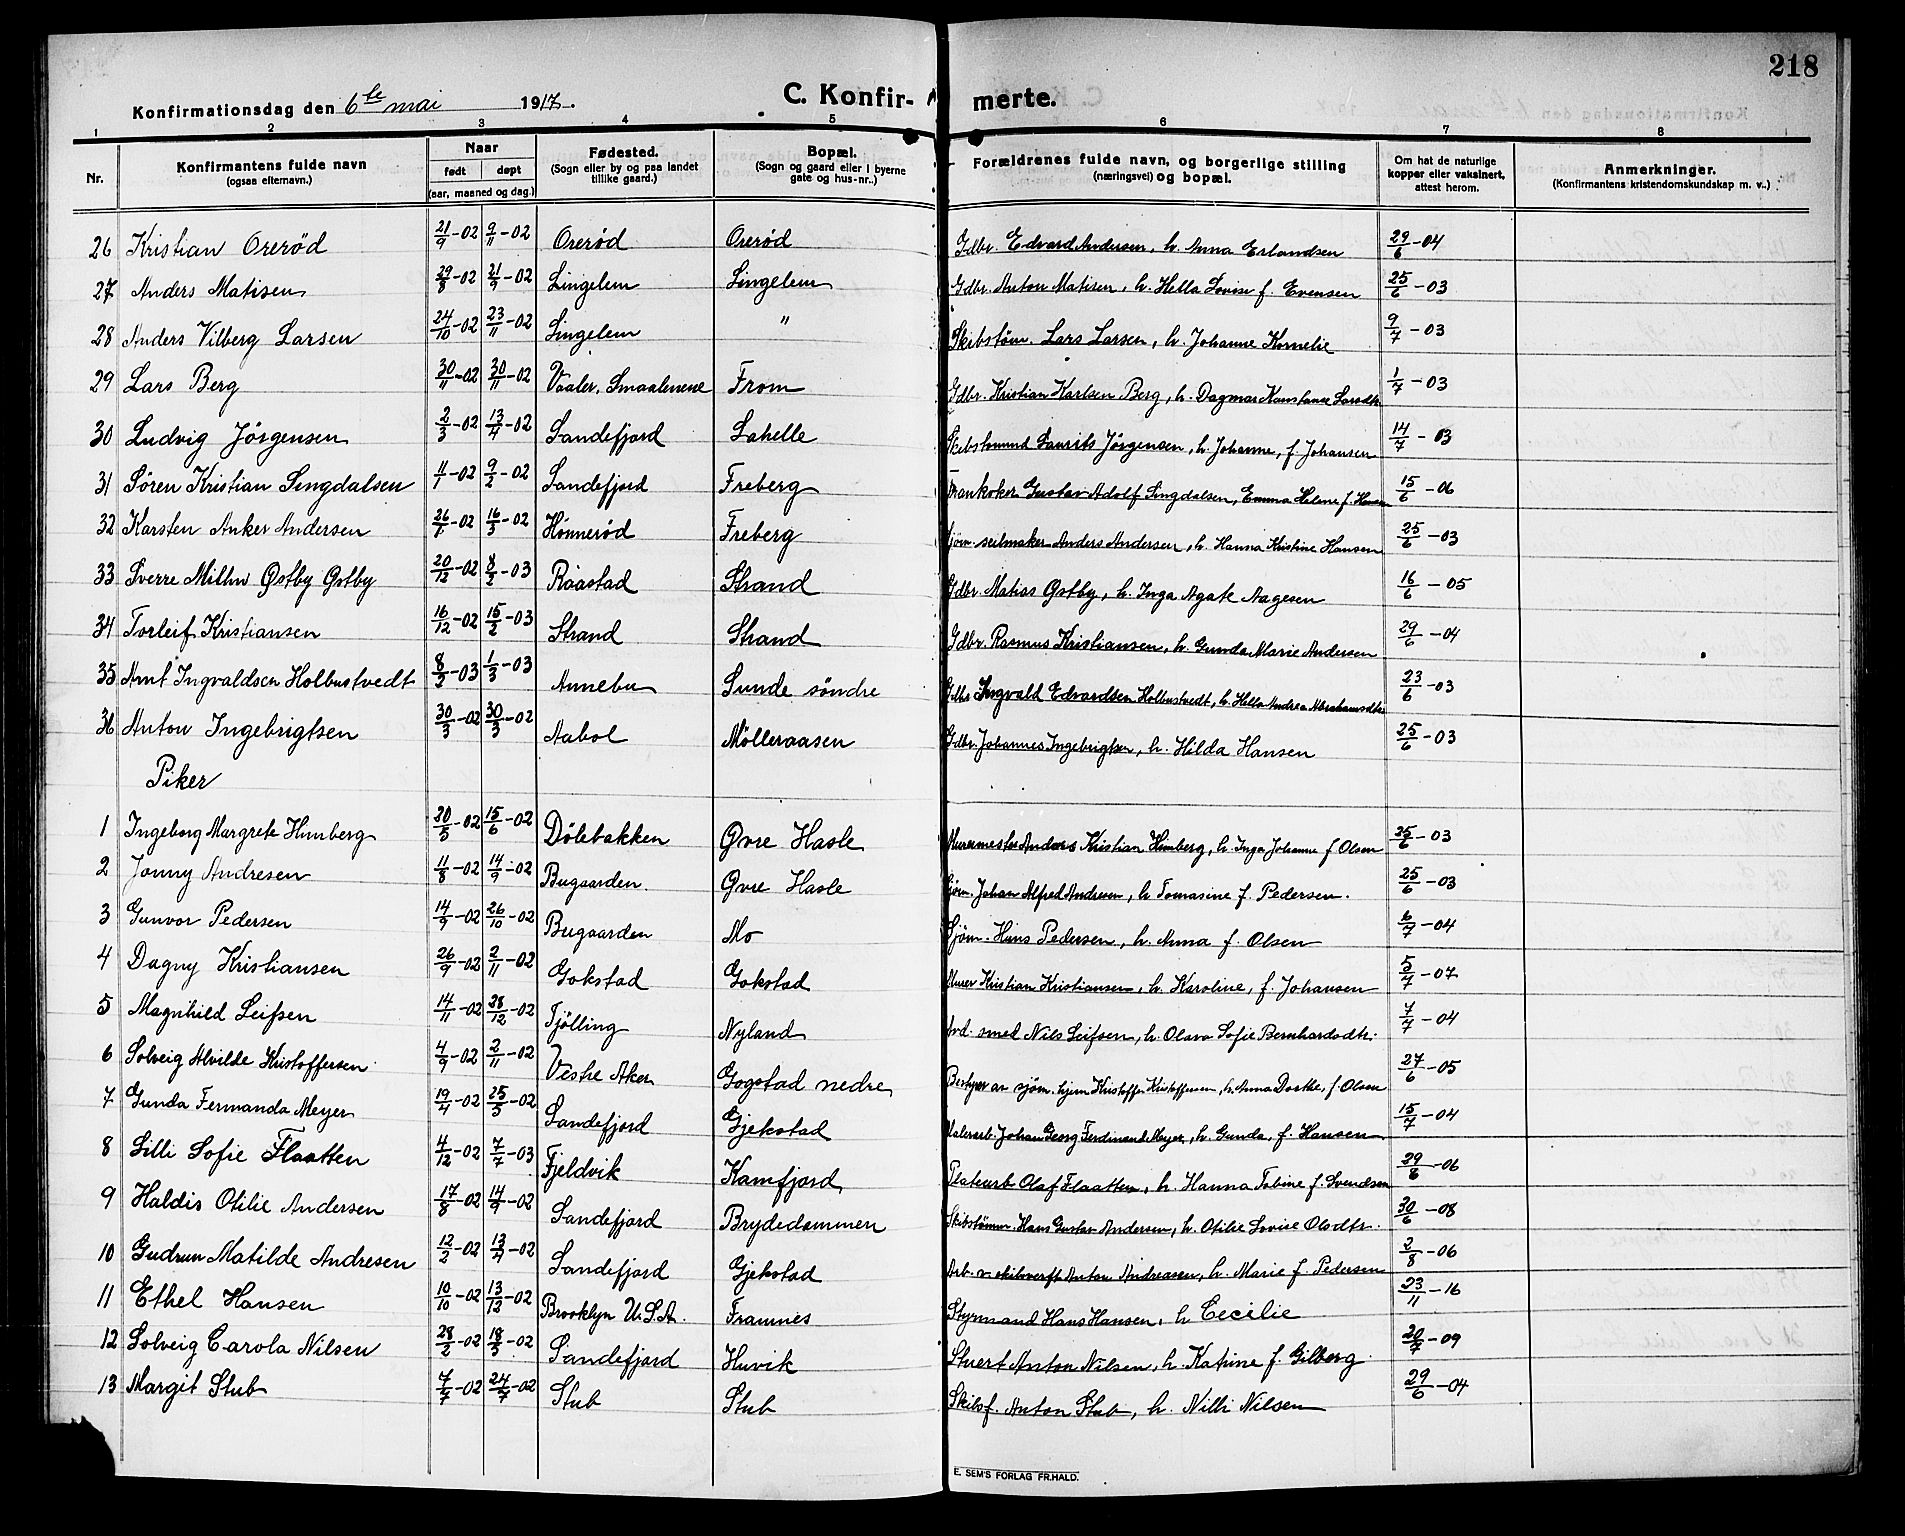 218
Konfirmationsdag den 6te mai 1917.
C. Konfir-merte.
1 2 3 4 5 6 7 8
Nr. Konfirmantens fulde navn (ogsaa efternavn.) Naar født døpt (aar, maaned og dag.) Fødested. (Sogn eller by og paa landet tillike gaard.) Bopæl. (Sogn og gaard eller i byerne gate og hus-nr..) Forældrenes fulde navn, og borgerlige stilling (næringsvei) og bopæl. Om hat de naturlige kopper eller vaksinert, attest herom. Anmerkninger. (Konfirmantens kristendomskundskap m. v..)
26 Kristian Orerød 21/9-02 9/11-02 Orerød Orerød Gdbr. Edvard Andersen, h. Anna Erlandsen 29/6-04
27 Anders Matisen 29/8-02 21/9-02 Lingelem Lingelem Gdbr. Anton Matisen, h. Hella Lovise f. Evensen 25/6-03
28 Anders Vilberg Larsen 24/10-02 23/11-02 Lingelem " Skibstøm. Lars Larsen, h. Johanne Kornelie 9/7-03
29 Lars Berg 30/11-02 30/11-02 Vaaler, Smaalenene From Gdbr. Kristian Karlsen Berg, h. Dagmar Konstanse Larsdtr 1/7-03
30 Ludvig Jörgensen 2/3-02 13/4-02 Sandefjord Lahelle Skibstømmd Laurits Jörgensen, h. Johanne, f. Johansen 14/7-03
31 Sören Kristian Lingdalsen 11/1-02 9/2-02 Sandefjord Freberg Trankoker Gustav Adolf Lingdalsen, Emma Helene f. Hansen 15/6-06
32 Karsten Anker Andersen 26/1-02 16/3-02 Hønnerød Freberg Sjøm. seilmaker Anders Andersen, h. Hanna Kristine Hansen 25/6-03
33 Sverre Østby Østby 20/12-02 8/2-03 Raastad Strand Gdbr. Matias Østby, h. Inga Agate Aagesen 16/6-05
34 Torleif Kristiansen 16/12-02 15/2-03 Strand Strand Gdbr. Rasmus Kristiansen, h. Gunda Marie Andersen 29/6-04
35 Arnt Ingvaldsen Holbustvedt 8/2-03 1/3-03 Annebu Sunde söndre Gdbr Ingvald Edvardsen Holbustvedt, h. Hella Andrea Abrahamsdtr 23/6-03
36 Anton Ingebrigtsen 30/3-02 30/3-02 Aabol Mölleraasen Gdbr. Johannes Ingebrigtsen, h. Hilda Hansen 25/6-03
Piker
1 Ingeborg Margrete Himberg 30/5-02 15/6-02 Dölebakken Øvre Hasle Murermester Anders Kristian Himberg, h. Inga Johanne f Olsen 25/6-03
2 Jonny Andresen 11/8-02 14/9-02 Bugaarden. Øvre Hasle Sjøm. Johan Alfred Andresen, h Tomasine f. Pedersen. 25/6-03
3 Gunvor Pedersen 14/9-02 26/10-02 Bugaarden Mo Sjøm. Hans Pedersen, h. Anna f. Olsen 6/7-04
4 Dagny Kristiansen 26/9-02 2/11-02 Gokstad Gokstad Murer Kristian Kristiansen, h. Karoline, f. Johansen 5/7-07
5 Magnhild Leifsen 14/11-02 28/12-02 Tjölling Nyland Arb. smed Nils Leifsen, h. Olava Sofie Bernhardsdtr. 7/7-04
6 Solveig Alvilde Kristoffersen 4/9-02 2/11-02 Vestre Aker Gogstad nedre Bestyrer av sjøm. hjem Kristoffer Kristoffersen, h. Anna Dortke, f Olsen 27/6-05
7 Gunda Fernanda Meyer 19/4-02 25/5-02 Sandefjord Gjekstad Malerarb. Johan Georg Ferdinand Meyer, h. Gunda, f. Hansen 15/7-04
8 Lilli Sofie Flaatten 4/12-02 7/7-03 Fjeldvik Kamfjord Platearb Olaf Flaatten, h. Hanna Tobine f. Svendsen 29/8-06
9 Haldis Otilie Andersen 17/8-02 14/9-02 Sandefjord Brydedammen Skibstømm. Hans Gustav Andersen, h. Otilie Lovise Olsdtr. 30/6-08
10 Gudrun Matilde Andresen 12/2-02 13/4-02 Sandefjord Gjekstad Arb. v. skibsverft Anton Andreasen, h. Marie f. Pedersen 2/8-06
11 Ethel Hansen 10/10-02 13/12-02 Brooklyn U.S.A. Framnes Styrmand Hans Hansen, h Cecilie 23/11-16
12 Solveig Carola Nilsen 28/2-02 18/5-02 Sandefjord Huvik Stuert Anton Nilsen, h. Katrine f. Gilberg 20/7-09
13 Margit Stub 7/7-02 24/7-02 Stub Stub Skibsf. Anton Stub, h. Nilli Nilsen 29/6-04
E. SEM'S FORLAG FR.HALD.